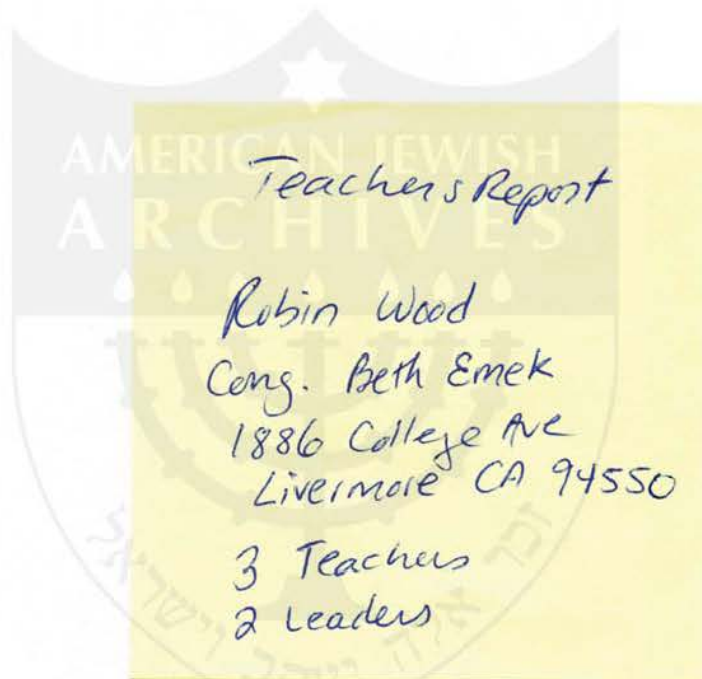 AMERICAN JEWISH
ARCHIVES
Teachers Report
Robin Wood
Cong. Beth Emek
1886 College Ave
Livermore CA 94550
3 Teachers
2 Leaders
זכר אלה יעקב וישראל